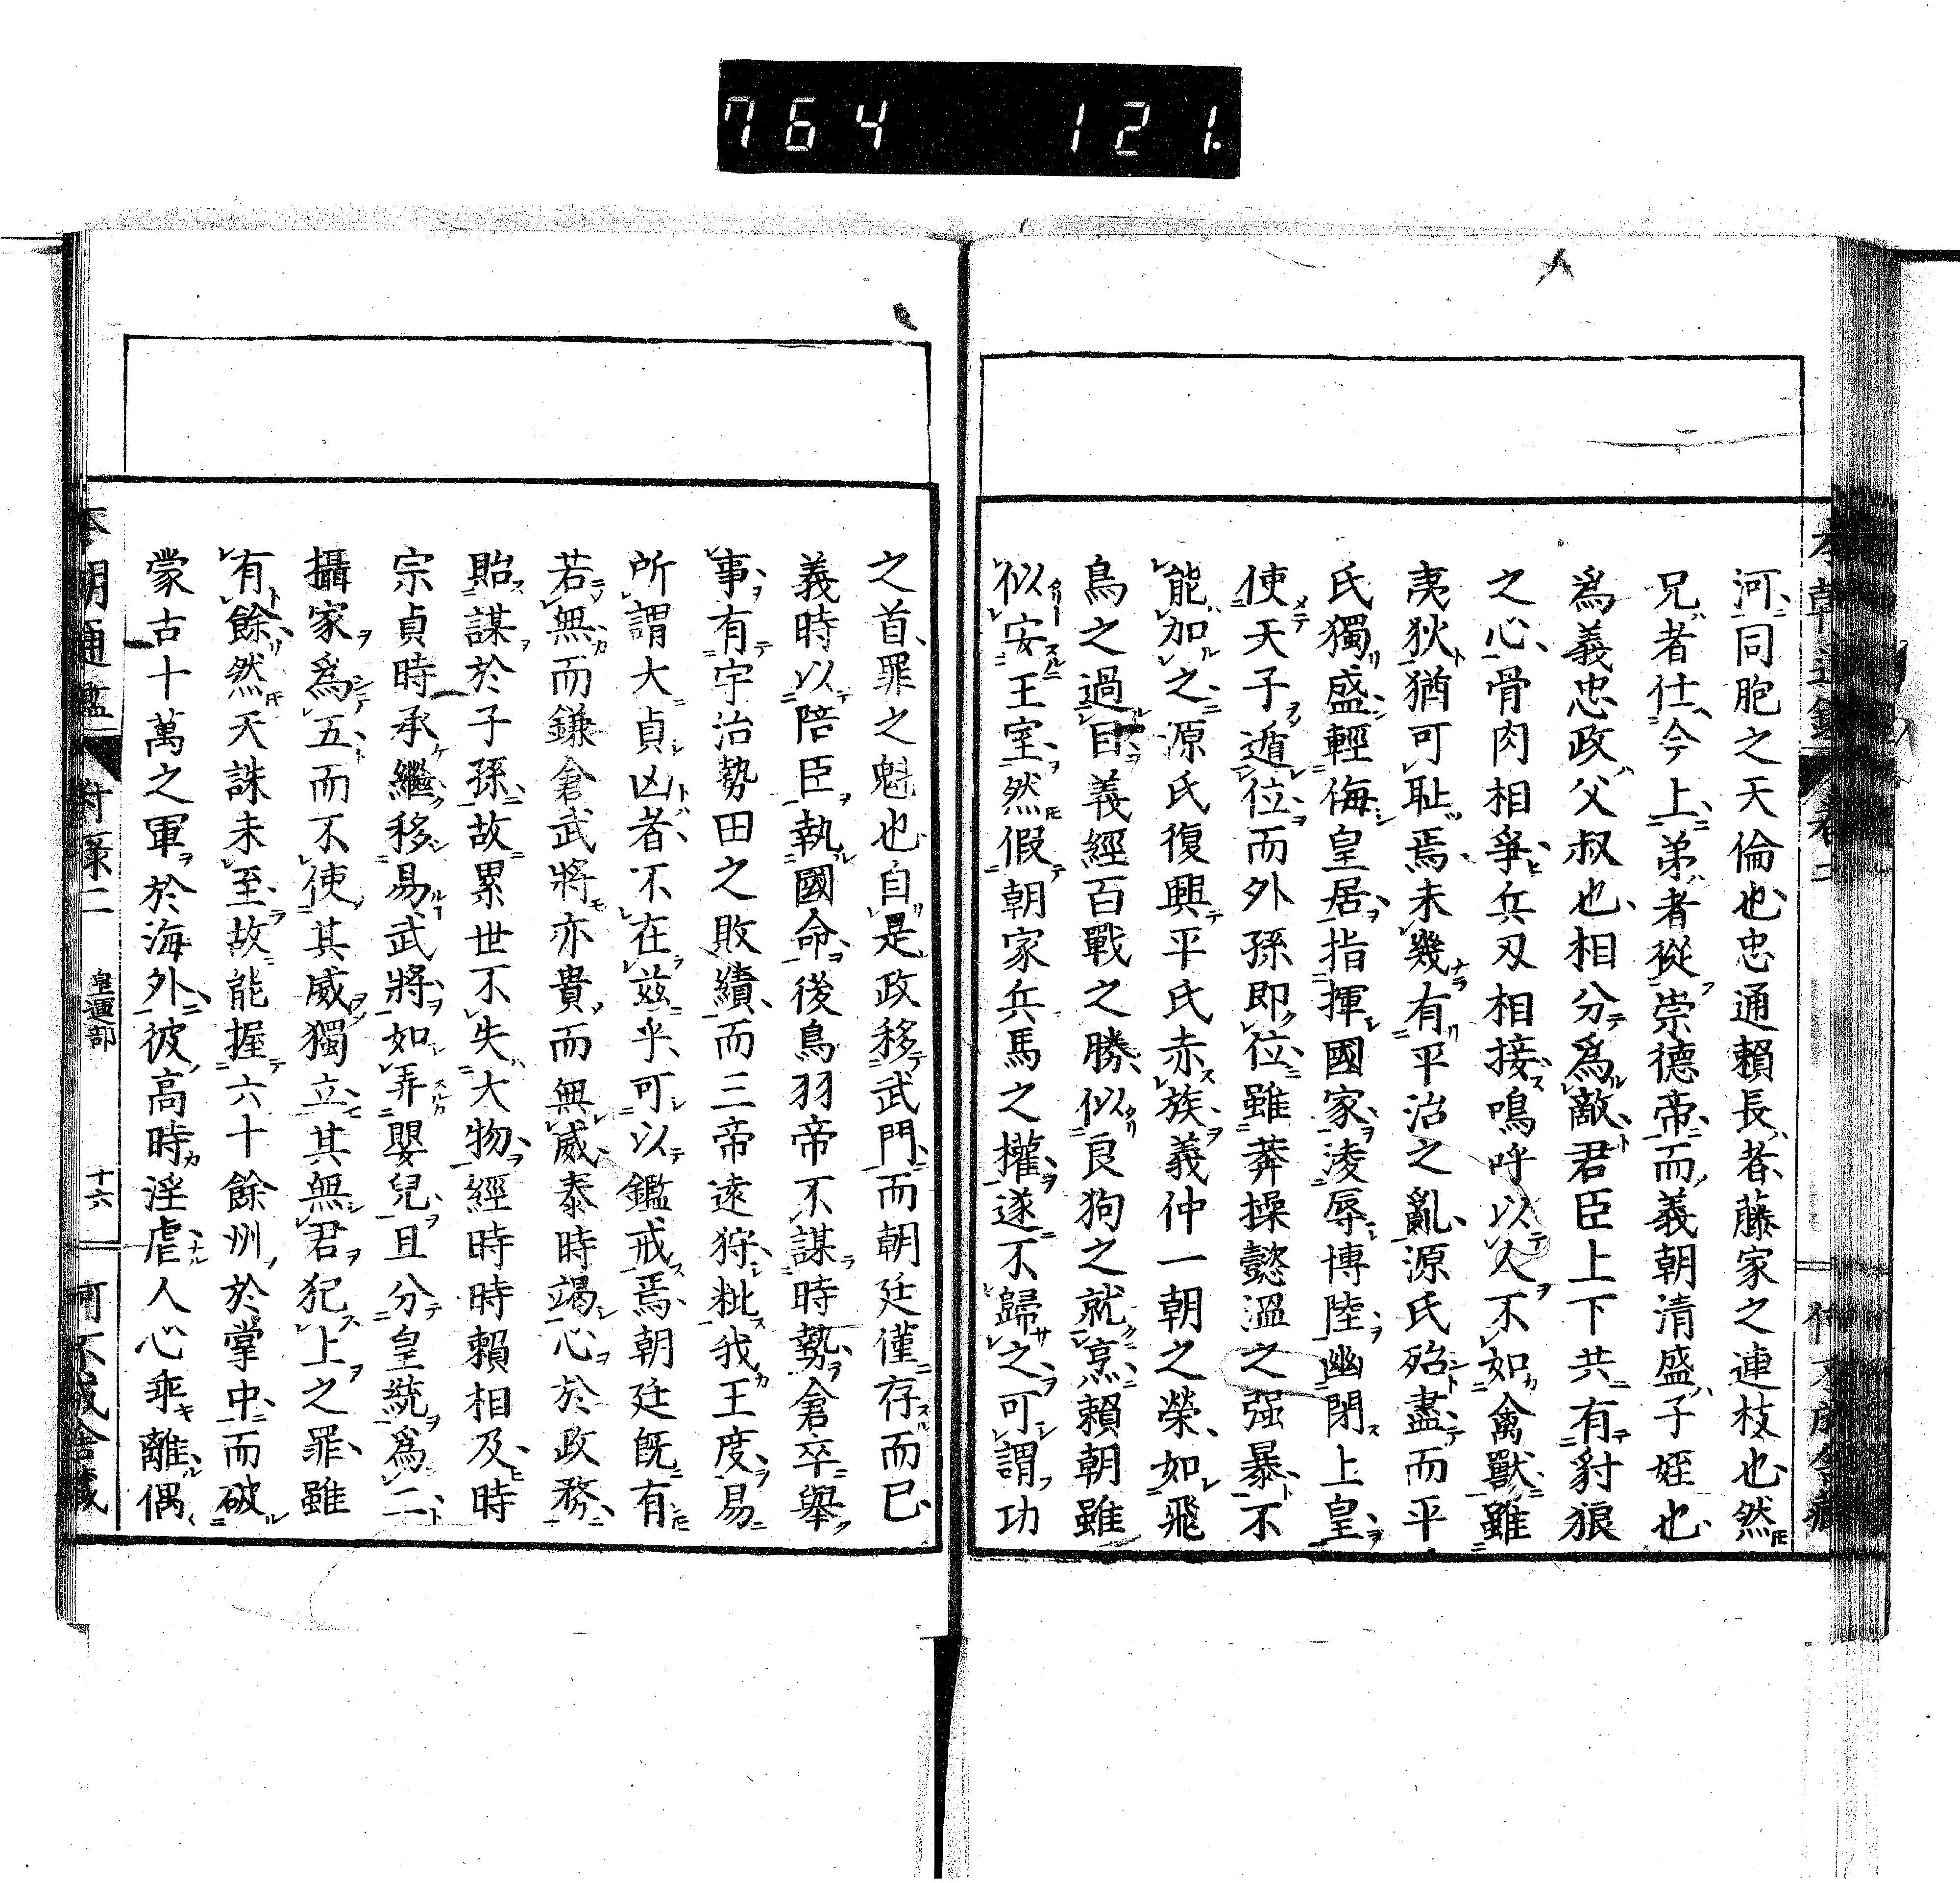 764 121.
河同胞之天倫也忠通賴長者藤家之連枝也然
兄者仕今上弟者從崇德帝而義朝清盛子姪也
爲義忠政父叔也相分爲敵君臣上下共有豺狼
之心骨肉相爭兵刃相接嗚呼以人不如禽獸雖
夷狄猶可恥焉未幾有平治之亂源氏殆盡而平
氏獨盛輕侮皇居指揮國家淩辱博陸幽閉上皇
使天子遁位而外孫即位雖莽操懿溫之强暴不
能加之源氏復興平氏赤族義仲一朝之榮如飛
鳥之過目義經百戰之勝似良狗之就烹賴朝雖
似安王室然假朝家兵馬之權遂不歸之可謂功
之首罪之魁也自是政移武門而朝廷僅存而已
義時以陪臣執國命後鳥羽帝不謀時勢倉卒舉
事有宇治勢田之敗績而三帝遠狩秕我王度易
所謂大貞凶者不在兹乎可以鑑戒焉朝廷既有
若無而鎌倉武將亦貴而無威泰時竭心於政務
貽謀於子孫故累世不失大物經時時賴相及時
宗貞時承繼移易武將如弄嬰兒且分皇統爲二
攝家爲五而不使其威獨立其無君犯上之罪雖
有餘然天誅未至故能握六十餘州於掌中而破
蒙古十萬之軍於海外彼高時淫虐人心乖離偶
本朝通鑑 附錄二 皇運部 十六